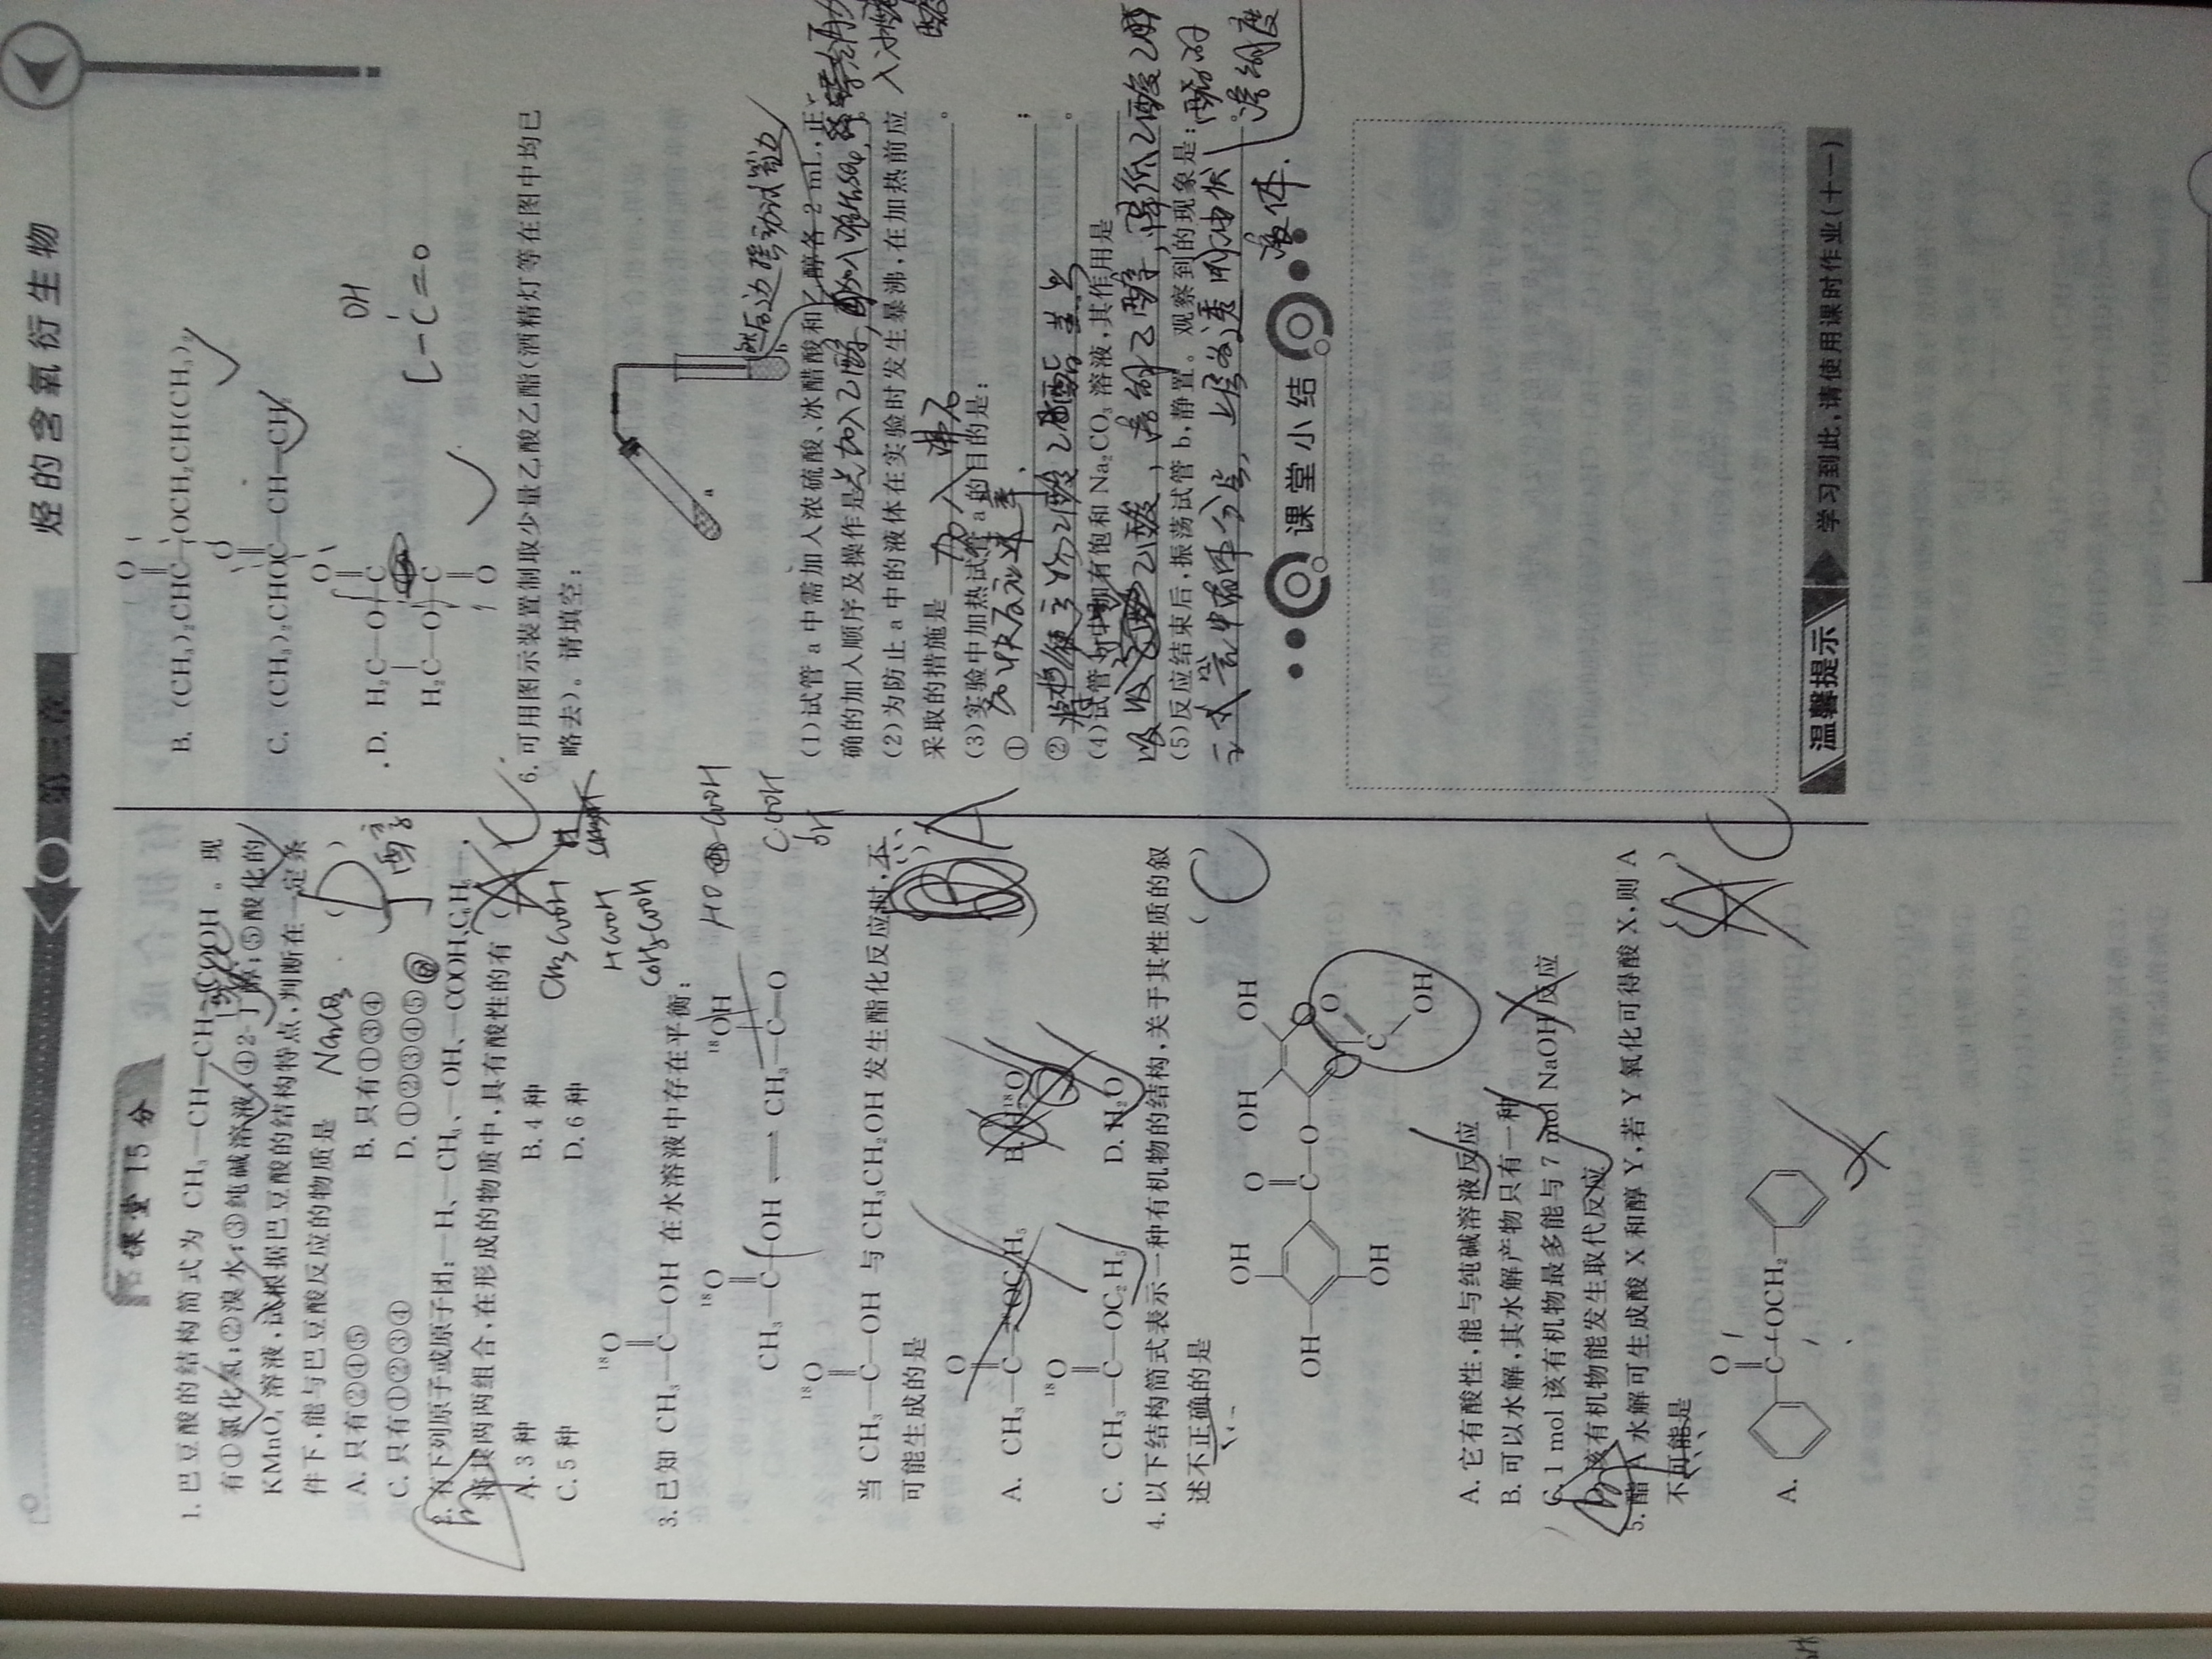 第三章 烃的含氧衍生物
课堂 15 分
1. 巴豆酸的结构简式为 CH₃—CH—CH—COOH 。现
有①氯化氢;②溴水;③纯碱溶液;④2-丁醇;⑤酸化的
KMnO₄ 溶液,试根据巴豆酸的结构特点,判断在一定条
件下,能与巴豆酸反应的物质是 Na₂CO₃ ( D )
A. 只有②④⑤ B. 只有①③④
C. 只有①②③④ D. ①②③④⑤
2. 有下列原子或原子团:—H、—CH₃、—OH、—COOH、C₆H₅—,
将其两两组合,在形成的物质中,具有酸性的有 ( A ) C
A. 3 种 B. 4 种
C. 5 种 D. 6 种
CH₃COOH
HCOOH
C₆H₅COOH
¹⁸O
3. 已知 CH₃—C—OH 在水溶液中存在平衡:
HO—COOH
¹⁸O ¹⁸OH
CH₃—C—OH ⇌ CH₃—C—O
COOH
OH
¹⁸O
当 CH₃—C—OH 与 CH₃CH₂OH 发生酯化反应时,不
可能生成的是 A
O
A. CH₃—C—¹⁸OC₂H₅ B. H₂¹⁸O
¹⁸O
C. CH₃—C—OC₂H₅ D. H₂O
4. 以下结构简式表示一种有机物的结构,关于其性质的叙
述不正确的是 ( C )
OH O OH OH
OH— —C—O—
O
OH C
OH
A. 它有酸性,能与纯碱溶液反应
B. 可以水解,其水解产物只有一种
C. 1 mol 该有机物最多能与 7 mol NaOH 反应
D. 该有机物能发生取代反应
5. 酯 A 水解可生成酸 X 和醇 Y,若 Y 氧化可得酸 X,则 A
不可能是 ( A ) C
O
A. —C—OCH₂—
O
B. (CH₃)₂CHC—OCH₂CH(CH₃)₂
O
C. (CH₃)₂CHOC—CH—CH₃
O
D. H₂C—O—C
H₂C—O—C
O
OH
C—C=O
6. 可用图示装置制取少量乙酸乙酯(酒精灯等在图中均已
略去)。请填空:
a
b
然后边摇动试管边
(1)试管 a 中需加入浓硫酸、冰醋酸和乙醇各 2 mL,正
确的加入顺序及操作是先加入乙醇,再加入浓H₂SO₄,
入冰醋
酸
(2)为防止 a 中的液体在实验时发生暴沸,在加热前应
采取的措施是 加入沸石 。
(3)实验中加热试管 a 的目的是:
① 加快反应速率. ;
② 乙酸乙酯蒸出 。
(4)试管 b 中加有饱和 Na₂CO₃ 溶液,其作用是
吸收 乙酸,溶解乙醇,降低乙酸乙
酯的
溶解度
(5)反应结束后,振荡试管 b,静置。观察到的现象是:
试管中液体分层,上层为透明油状
液体.
课堂小结
温馨提示 学习到此,请使用课时作业(十一)